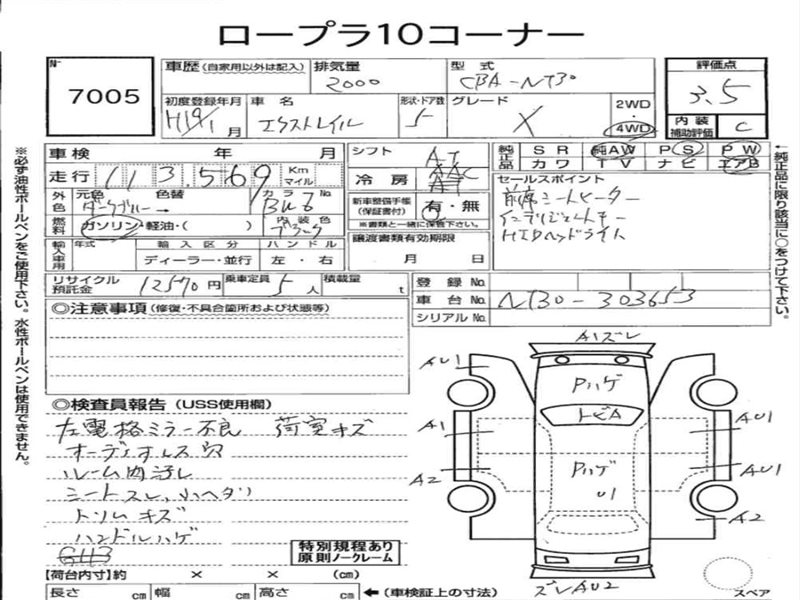 ロープラ10コーナー
№ 7005
車歴(自家用以外は記入) 排気量 2000 型式 CBA-NT30
評価点 3.5
初度登録年月 H19/1月 車名 エクストレイル 形状・ドア数 5 グレード X 2WD・4WD
内装補助評価 C
車検 年 月
走行 113,569 Km マイル
外色 元色 ダークブルー 色替 → カラーNo. BW6
燃料 ガソリン・軽油・( ) 内装色 ブラック
輸入車用 年式 輸入区分 ディーラー・並行 ハンドル 左・右
シフト AT
冷房 AAC
新車整備手帳(保証書付) 有・無
※書類と一緒に保管下さい。
譲渡書類有効期限
月 日
純正品 SR 純AW PS PW
カワ TV ナビ エアB
セールスポイント
前席シートヒーター
インテリジェントキー
HIDヘッドライト
リサイクル預託金 12570円 乗車定員 5人 積載量 t
登録No.
車台No. NT30-303653
シリアルNo.
◎注意事項(修復・不具合箇所および状態等)
◎検査員報告(USS使用欄)
左電格ミラー不良 荷室キズ
オーディオレス穴
ルーム内汚レ
シートスレ,小ヘタリ
トリムキズ
ハンドルハゲ
特別規程あり
原則ノークレーム
【荷台内寸】約 × × (cm)
長さ cm 幅 cm 高さ cm ←(車検証上の寸法)
A1ズレ
AU1
Pハゲ
トビA
A1
AU1
Pハゲ
A2
U1
AU1
A2
ズレAU2
スペア
※必ず油性ボールペンをご使用下さい。水性ボールペンは使用できません。
←純正品に限り該当に○をつけて下さい。